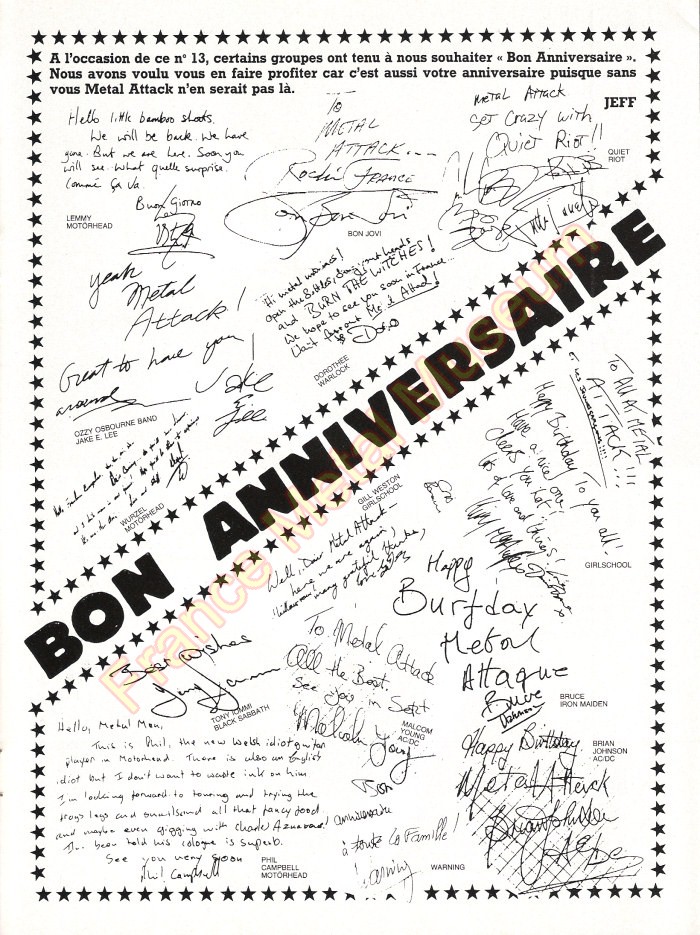 A l'occasion de ce n° 13, certains groupes ont tenu à nous souhaiter « Bon Anniversaire ».
Nous avons voulu vous en faire profiter car c'est aussi votre anniversaire puisque sans
vous Metal Attack n'en serait pas là.
JEFF
Hello little bamboo shoots.
We will be back. We have
gone. But we are here. Soon you
will see. What quelle surprise.
Comme ça va.
Buon Giorno
LEMMY
MOTÖRHEAD
To
METAL
ATTACK...
Rockin FRANCE
Bon Jovi
BON JOVI
METAL ATTACK
GET CRAZY WITH
QUIET RIOT!!
QUIET
RIOT
yeah
Metal
Attack!
Great to have you
around
Jake
E Lee
OZZY OSBOURNE BAND
JAKE E. LEE
Hi metal maniacs!
Open the Bottles, bang your heads
and BURN THE WITCHES!
We hope to see you soon in France...
Doro
DOROTHEE
WARLOCK
WURZEL
MOTÖRHEAD
BON ANNIVERSAIRE
GILL WESTON
GIRLSCHOOL
Well, Dear Metal Attack -
here we are again,
many grateful thanks,
TO ALL AT METAL
ATTACK!!!
Happy Birthday To you all!
Have a nice one,
GIRLSCHOOL
Best wishes
Tony Iommi
TONY IOMMI
BLACK SABBATH
To Metal Attack
All the Best.
See you in Sept
Malcolm Young
MALCOM
YOUNG
AC/DC
Happy
Burfday
Metoul
Attaque
Bruce
BRUCE
IRON MAIDEN
Hello, Metal Men,
This is Phil, the new Welsh idiot guitar
player in Motorhead. There is also an English
idiot but I don't want to waste ink on him
I'm looking forward to touring and trying the
frogs legs and snails and all that fancy food.
and maybe even gigging with Charles Aznavour!
I've been told his cologne is superb.
See you very soon
Phil Campbell
PHIL
CAMPBELL
MOTÖRHEAD
Bon
anniversaire
à toute la Famille!
Warning
WARNING
Happy Birthday
Metal Atterck
Brian Johnson
AC DC
BRIAN
JOHNSON
AC/DC
France Metal Museum